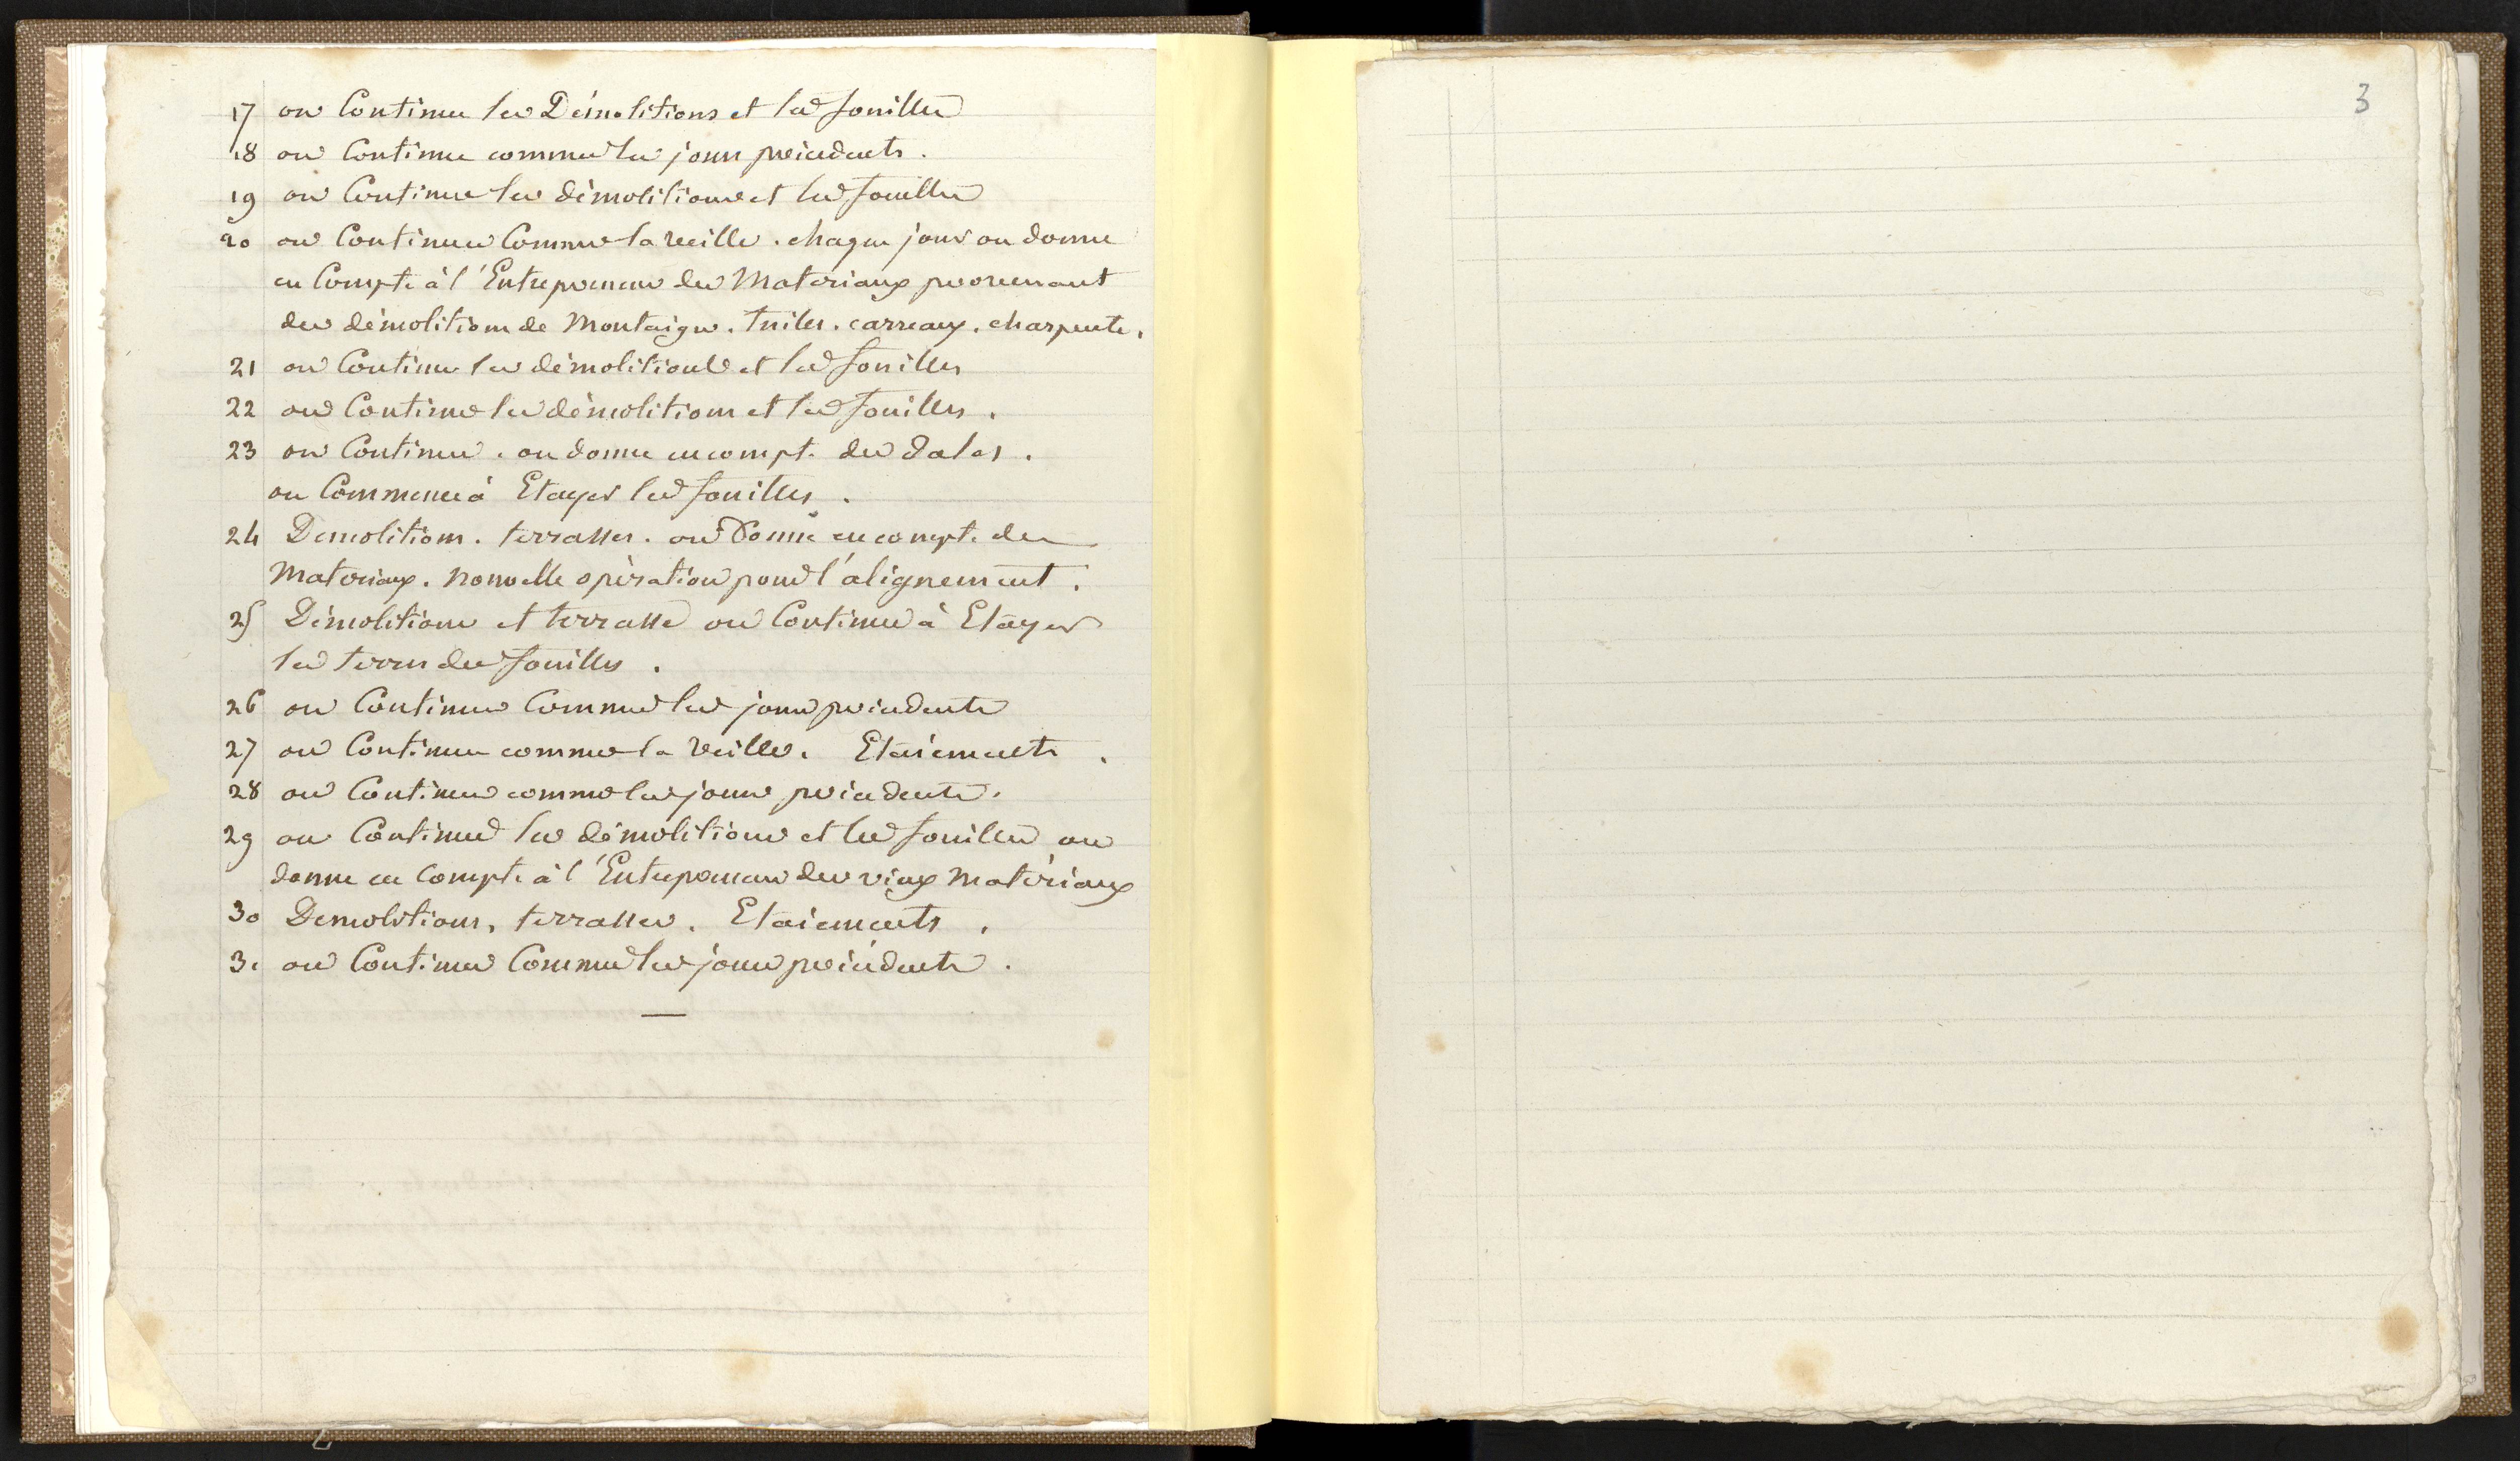 17 on Continue les Démolitions et les fouilles
18 on Continue comme les jours précédents.
19 on Continue les démolitions et les fouilles
20 on Continue Comme la veille. chaque jour on donne
en Compte à l'Entrepreneur des Materiaux provenant
des démolitions de Montaigu. Tuiles. carreaux. charpente.
21 on Continue les démolitions et les fouilles
22 on Continue les démolitions et les fouilles.
23 on Continue. on donne en compte des dales.
on Commence à Etayer les fouilles.
24 Demolitions. terrasses. on Donne en compte des
Materiaux. nouvelle opération pour l'alignement.
25 Démolitions et terrasse on Continue à Etayer
les terres des fouilles.
26 on Continue Comme les jours précédents
27 on Continue comme la veille. Etaiements.
28 on Continue comme les jours précédents.
29 on Continue les démolitions et les fouilles on
donne en Compte à l'Entrepreneur des vieux Matériaux
30 Demolitions, terrasses. Etaiements.
31 on Continue Comme les jours précédents.
3